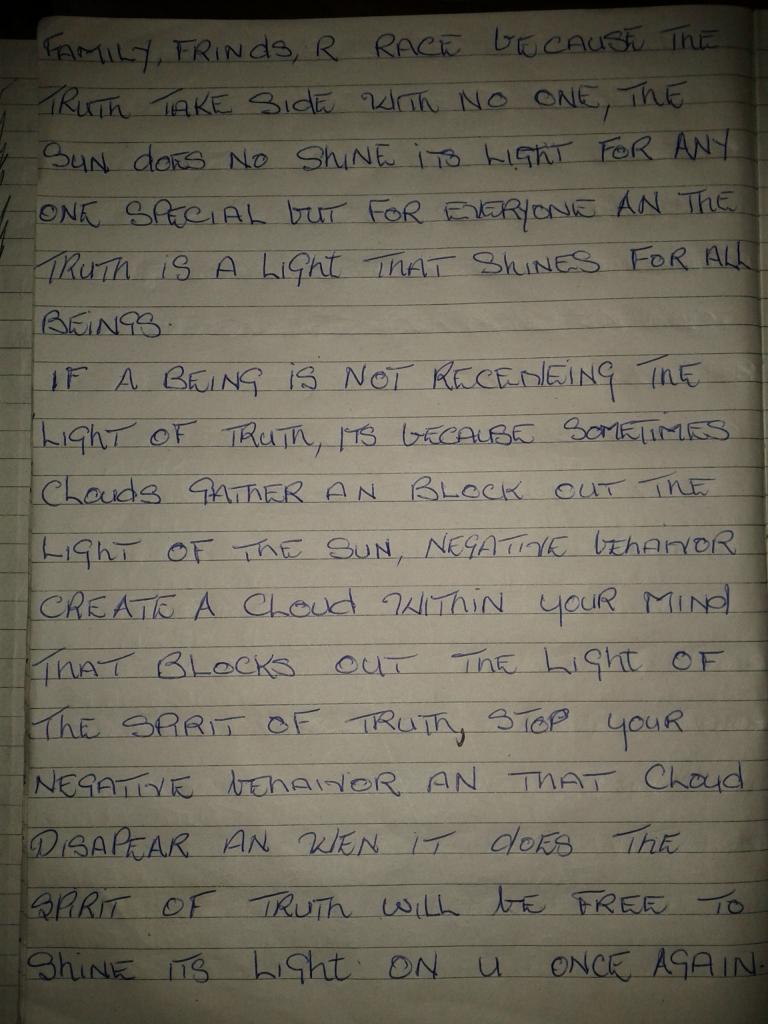 FAMILY, FRINdS, R RACE bECAUSE THE
TRUTH TAKE SIDE WITH NO ONE, THE
SUN dOES NO SHINE ITS LIGHT FOR ANY
ONE SPECIAL bUT FOR EVERYONE AN THE
TRUTH iS A LIGhT THAT SHINES FOR ALL
BEiNGS.
IF A BEING iS NOT RECEVEING THE
LIGhT OF TRUTH, ITS bECAUSE SOMETIMES
ClOUdS GATHER AN BLOCK OUT THE
LIGhT OF THE SUN, NEGATIVE bEHAIVOR
CREATE A ClOUd WITHIN yOUR MINd
THAT BLOCKS OUT THE LIGhT OF
THE SPIRIT OF TRUTH, STOP yOUR
NEGATIVE bEHAIVOR AN THAT ClOUd
DISAPEAR AN WEN IT dOES THE
SPIRIT OF TRUTH WILL bE FREE TO
ShINE ITS LIGhT ON U ONCE AGAIN.